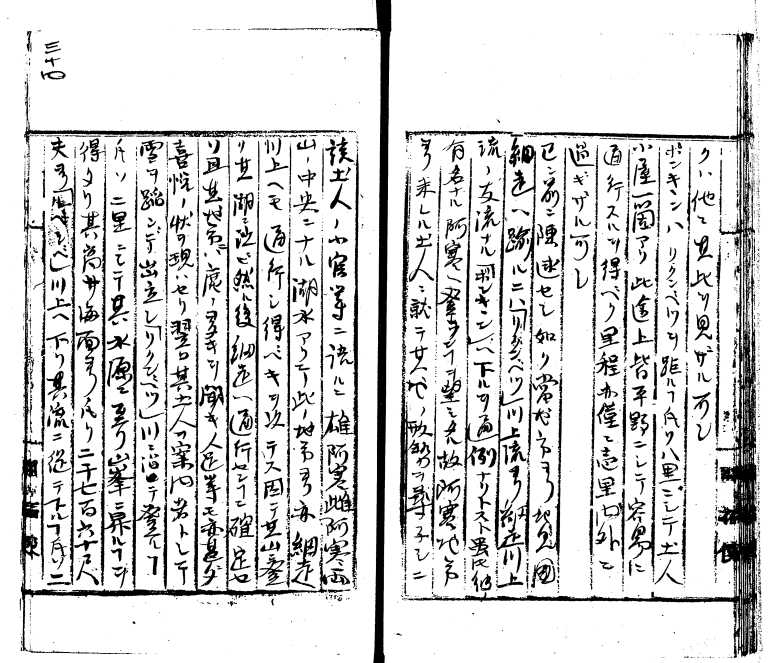 クハ他ニ其比ヲ見ザル可シ
ポンキキンハリクンベツヲ距ルコト凡ソ八里ニシテ土人
小屋一箇アリ此途上皆平野ニシテ容易ニ
通行スルヲ得ベク里程亦僅ニ壱里内外ニ
過ギザル可シ
已ニ前ニ陳述セシ如ク当地方ヨリ地見国
網走ヘ踰ルニハ「リクンベツ」川上流ヨリ網走川上
流ノ支流ナル「ポンキキン」ヘ下ルヲ通例ナリトス雖ﾓ他
有名ナル阿寒ヘ登ランコトヲ望ミタル故阿寒地方
ヨリ来レル土人ニ就テ其地ノ形勢ヲ尋子シニ
三十四
該土人ノ小官等ニ語ルニ雄阿寒雌阿寒両
山ノ中央ニ大ナル湖水アリテ此ノ地方ヨリ亦網走
川上ヘモ通行シ得ベキヲ以テス因テ其山ニ登
リ其湖ニ泛ビ然ル後網走ヘ通行センコトニ確定セ
リ且其地方ハ鹿ノ多キヲ聞キ人足等モ亦甚ダ
喜悦ノ状ヲ現ハセリ翌日其土人ヲ案内者トシテ
雪ヲ踏ンデ出立シ「リクンベツ」川ニ沿ヒテ登ルコト
凡ソ二里ニシテ其水源ニ至リ山峯ニ昇ルコトヲ
得タリ其高サ海面ヨリ凡ソ二千七百六十尺
夫ヨリ 川上ヘ下リ其流ニ従テ下ルコト凡ソ二